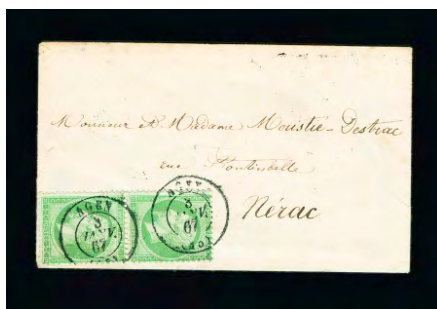 Monsieur & Madame Moustié-Destrac
rue
Nérac
AGEN
3
JANV.
67
AGEN
3
JANV.
67